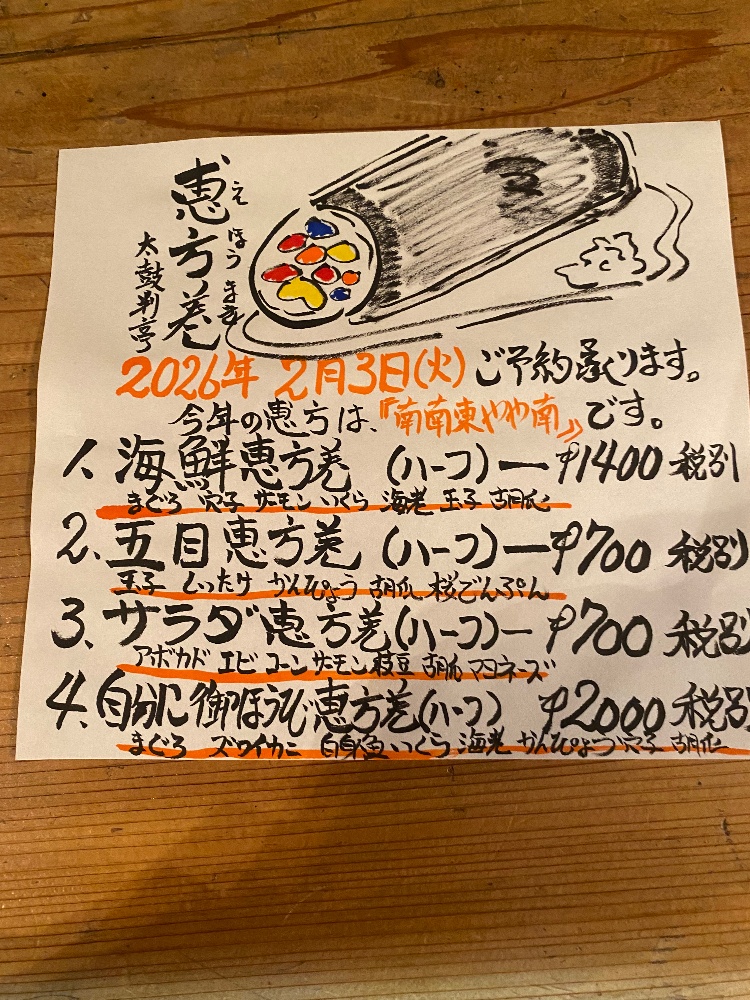 恵方巻
えほうまき
太鼓判亭
2026年 2月3日(火)ご予約承ります。
今年の恵方は、『南南東やや南』です。
1、海鮮恵方巻 (ハーフ)ー¥1400 税別
まぐろ 穴子 サーモン いくら 海老 玉子 胡瓜
2、五目恵方巻 (ハーフ)ー¥700 税別
玉子 しいたけ かんぴょう 胡瓜 桜でんぶん
3、サラダ恵方巻(ハーフ)ー¥700 税別
アボカド エビ コーン サーモン 枝豆 胡瓜 マヨネーズ
4、自分に御ほうび恵方巻(ハーフ) ¥2000 税別
まぐろ ズワイカニ 白身魚 いくら 海老 かんぴょう 穴子 胡瓜